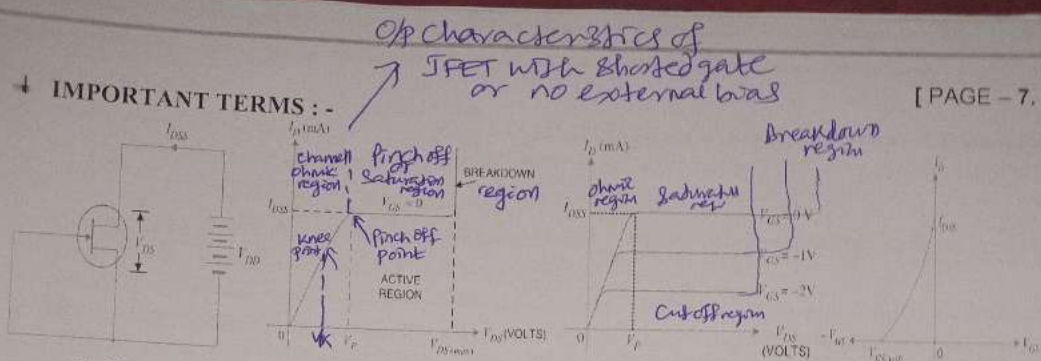 O/p characteristics of
JFET with shorted gate
or no external bias
IMPORTANT TERMS : -
[ PAGE – 7.
I_DSS
V_DS
V_DD
I_D (mA)
channel ohmic region
Pinch off or Saturation region
BREAKDOWN region
V_GS = 0
I_DSS
Knee point
Pinch off point
ACTIVE REGION
0
V_K
V_P
V_DS(max)
V_DS (VOLTS)
I_D (mA)
Breakdown region
ohmic region
I_DSS
V_GS = 0 V
V_GS = -1V
V_GS = -2V
Cut off region
0
V_P
V_DS (VOLTS)
I_D
I_DSS
-V_GS
V_GS(off)
0